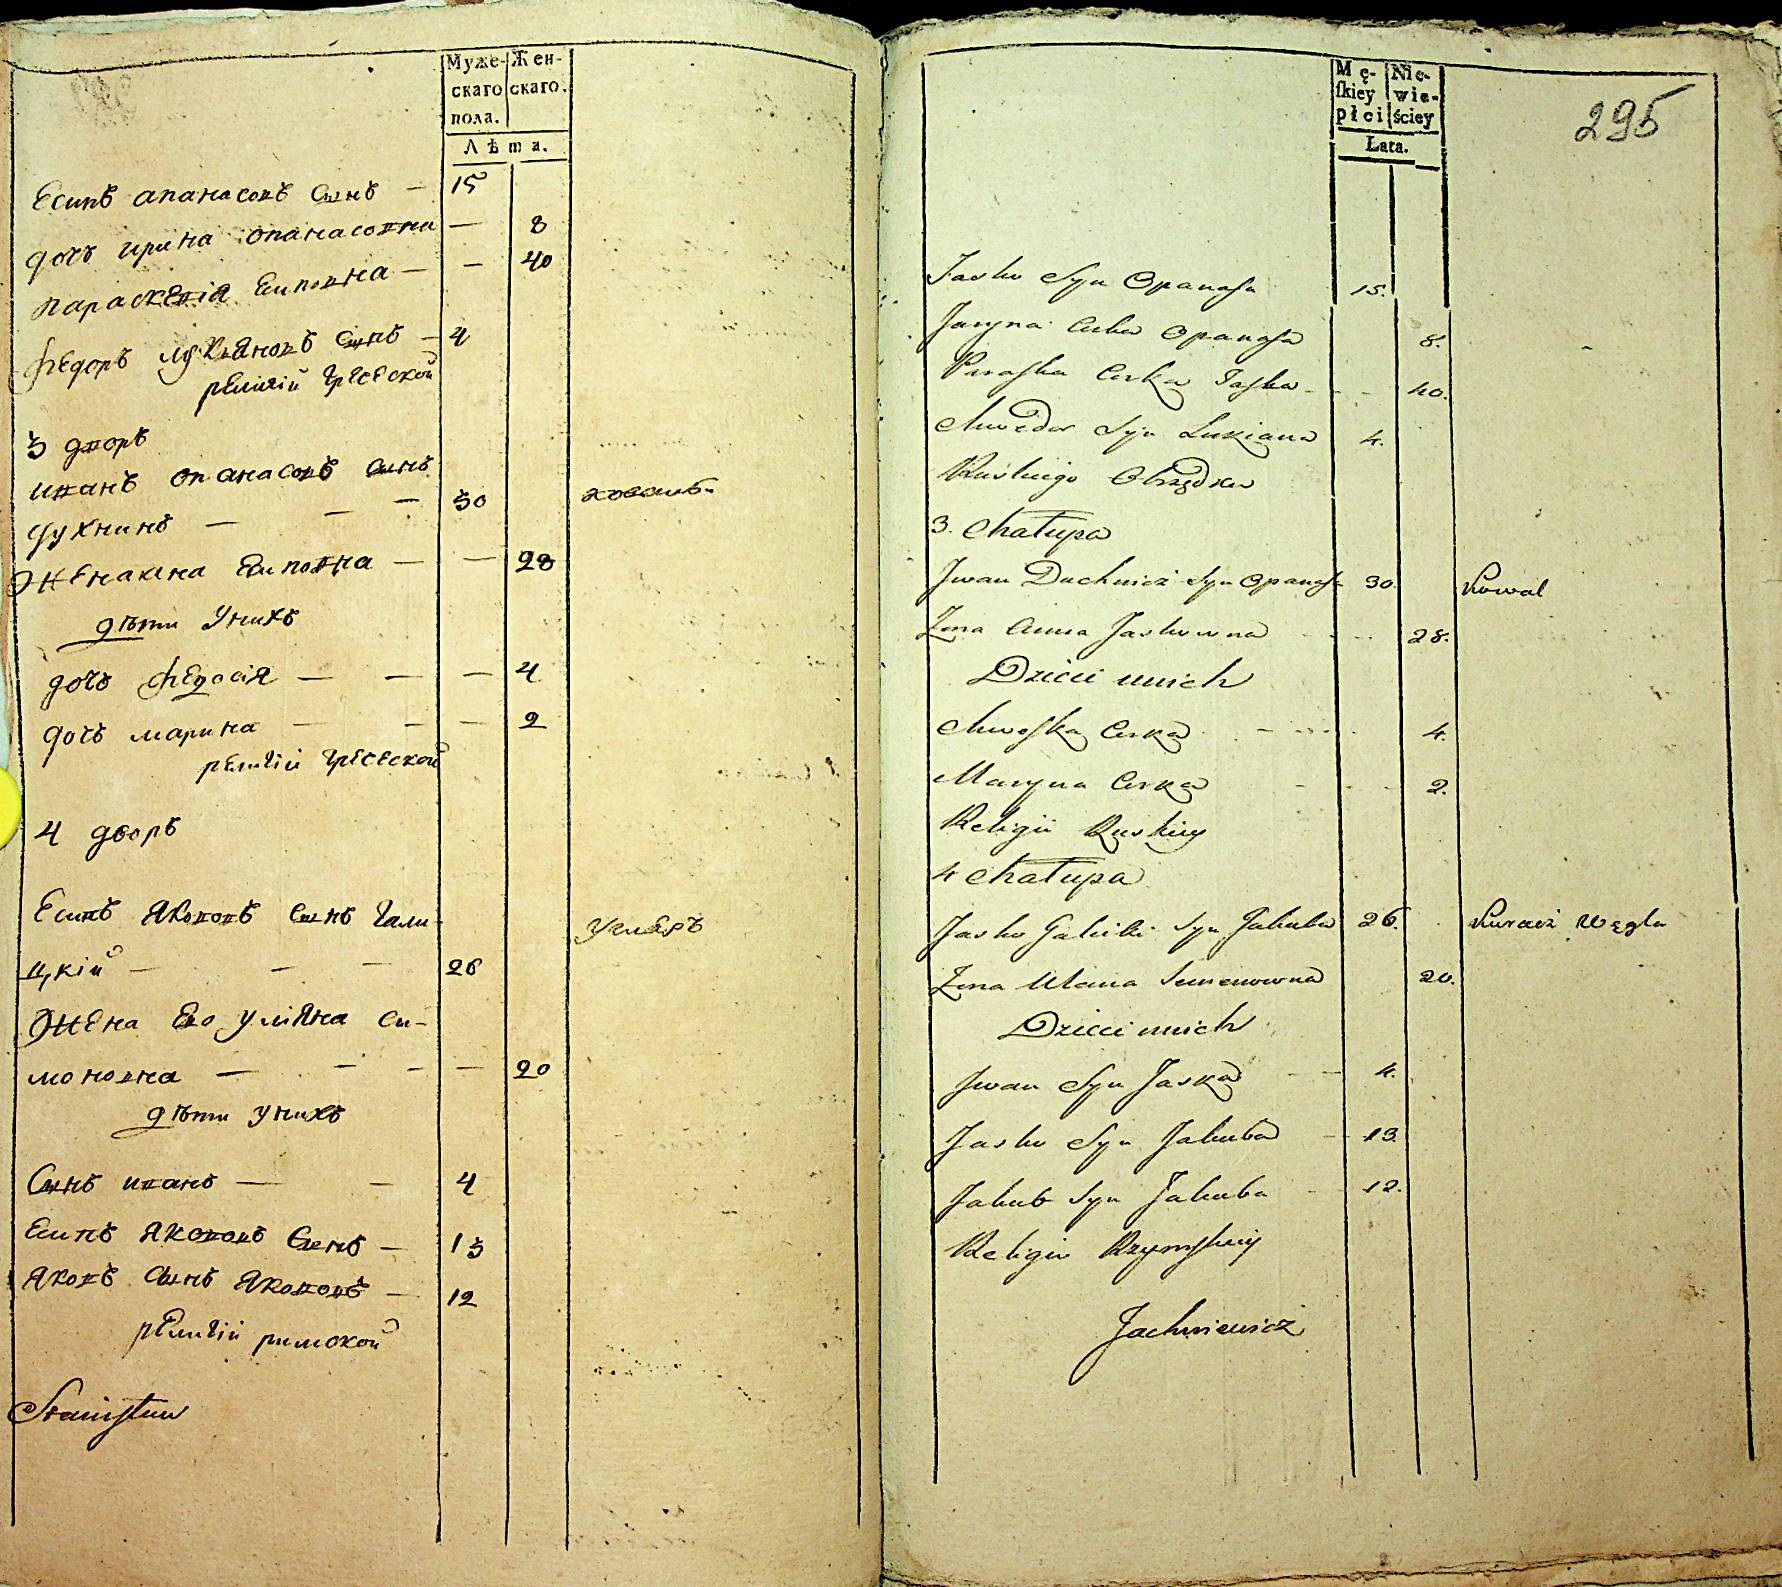 Муже- Жен-
скаго скаго.
пола.
Лѣта.
Есипъ апанасовъ сынъ — 15
дочъ ирина опанасовна — 8
параскевія есиповна — — 40
федоръ лукяновъ сынъ — 4
религіи греческой
3 дворъ
иванъ опанасовъ сынъ
духнинъ — — — 30 коваль
жена анна есиповна — — 28
дѣти у нихъ
дочъ федосія — — — 4
дочъ марина — — — 2
религіи греческой
4 дворъ
Есипъ якововъ сынъ гали- углярь
цкій — — — 26
жена ево уліяна си-
моновна — — — — 20
дѣти у нихъ
сынъ иванъ — — 4
есипъ якововъ сынъ — 13
яковъ сынъ якововъ — 12
религіи римской
Stanisław
295
Mę- Nie-
skiey wie-
płci ściey
Lata.
Jasko Syn Opanasa 15.
Jaryna Curka Opanasa 8.
Paraska Curka Jaska - - - 40.
Chwedor Syn Lukiana 4.
Ruskiego Obrządku
3. Chałupa
Jwan Duchnicz Syn Opanasa 30. Kowal
Zona Anna Jaskowna - - - 28.
Dzieci unich
Chweska Curka - - - 4.
Maryna Curka - - - 2.
Religii Ruskiey
4 Chałupa
Jasko Galicki Syn Jakuba 26. Kuracz Węgla
Zona Ulana Semenowna 20.
Dzieci unich
Jwan Syn Jaska - - 4.
Jasko Syn Jakuba - 13.
Jakub Syn Jakuba - 12.
Religii Rzymskiey
Jachniewicz